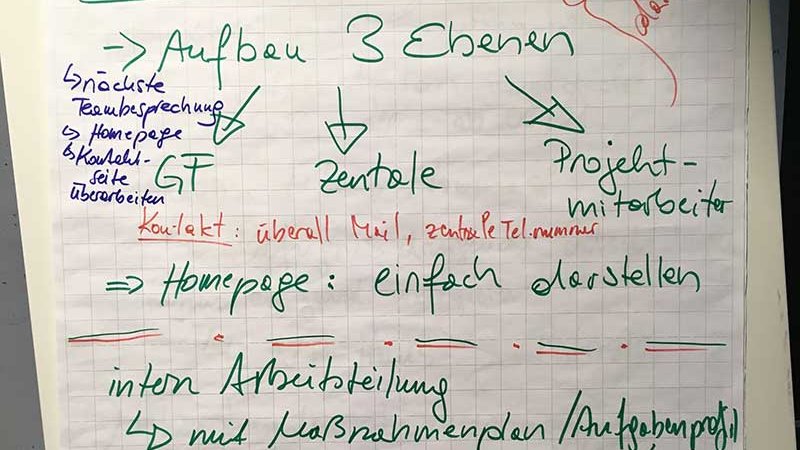 → Aufbau 3 Ebenen
↳ nächste
Teambesprechung
↳ Homepage
↳ Kontakt-
seite
überarbeiten
GF
Zentrale
Projekt-
mitarbeiter
Kontakt: überall Mail, zentrale Tel.nummer
⇒ Homepage: einfach darstellen
intern Arbeitsteilung
↳ mit Maßnahmenplan / Aufgabenprofil